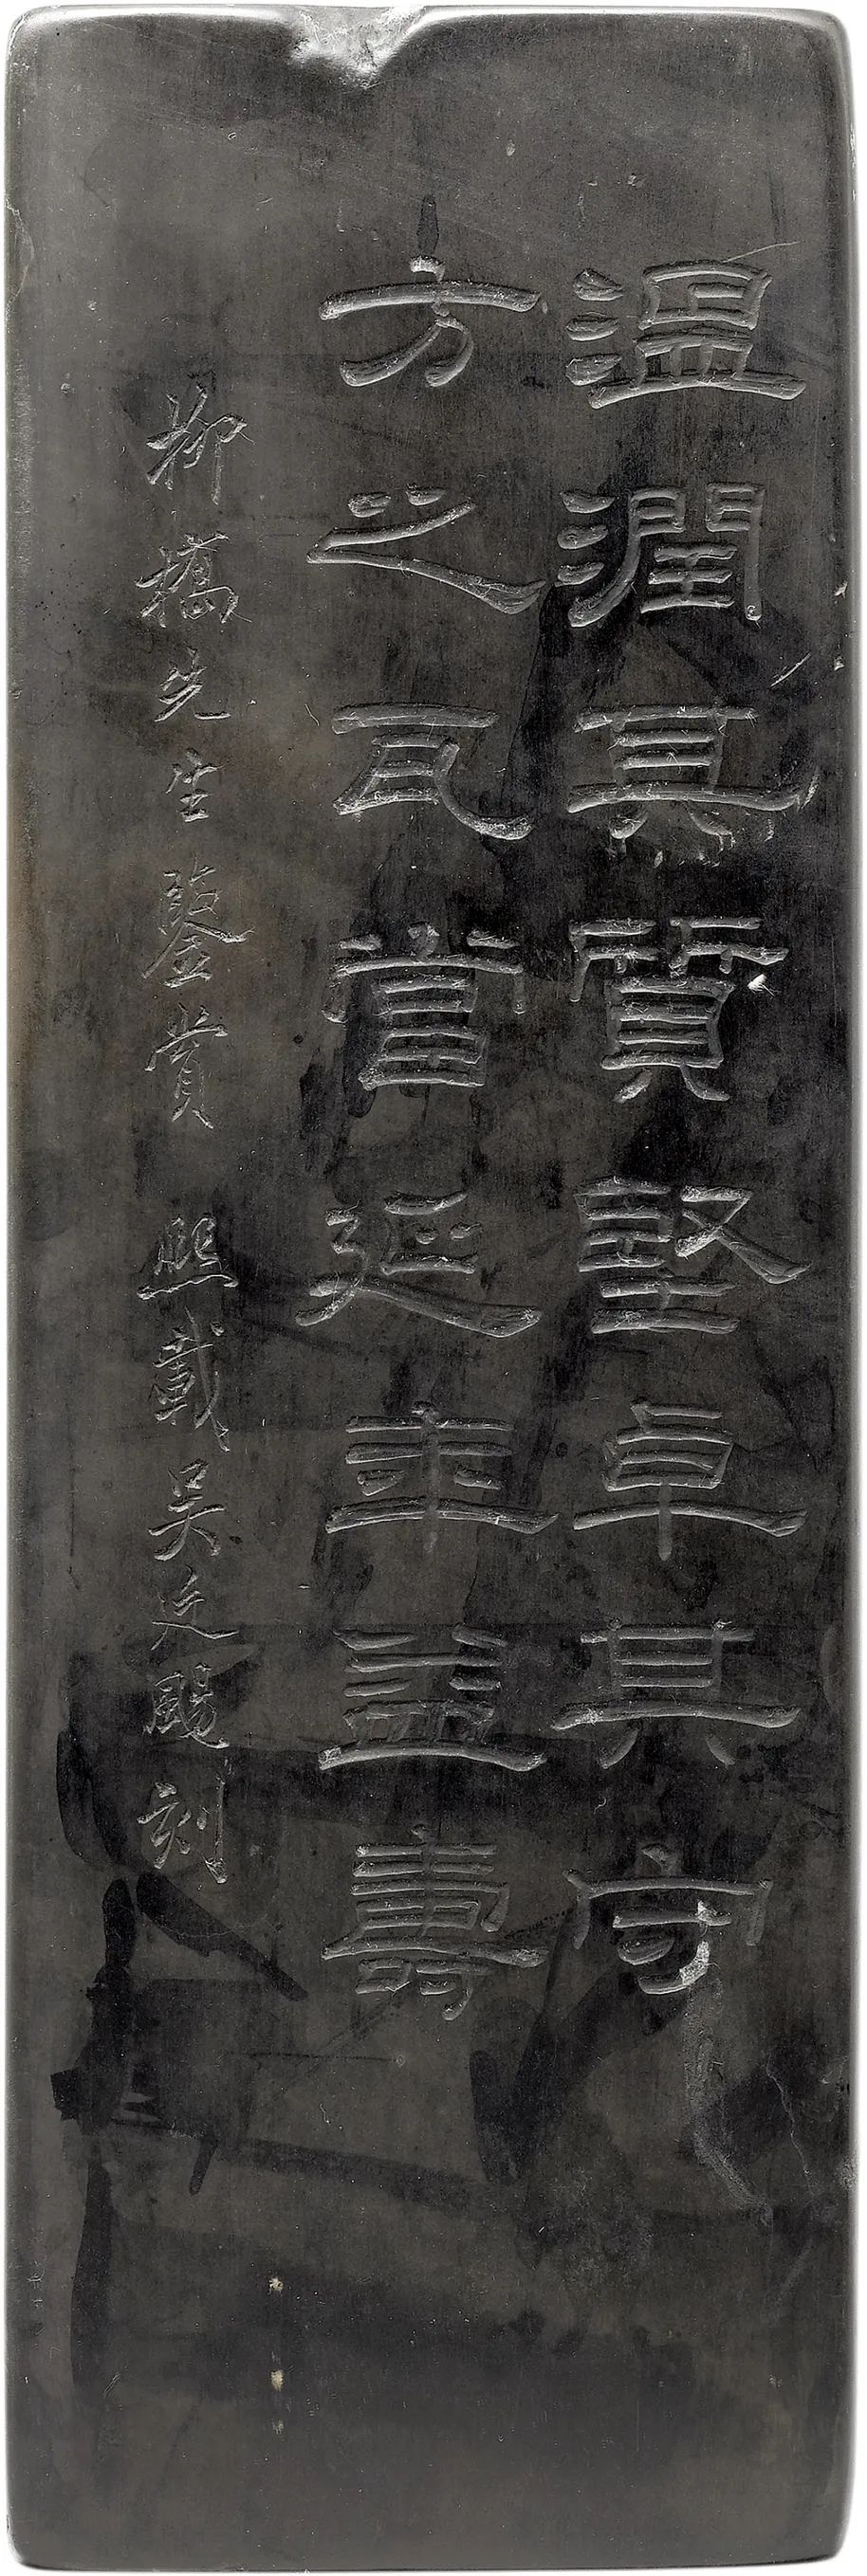 溫潤其質堅卓其守
方之瓦當延年益壽
柳橋先生鑒賞 熙載吳廷颺刻